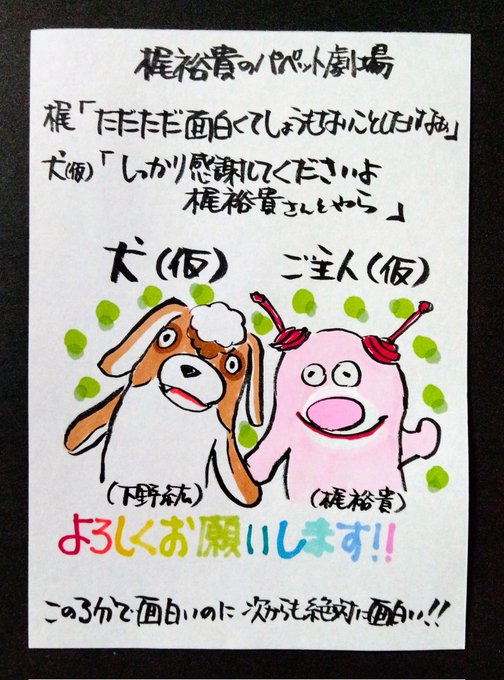 梶裕貴のパペット劇場
梶「ただただ面白くてしょうもないことしたいなぁ」
犬(仮)「しっかり感謝してくださいよ
梶裕貴さんとやら」
犬(仮) ご主人(仮)
(下野紘) (梶裕貴)
よろしくお願いします!!
この3分で面白いのに次からも絶対に面白い!!